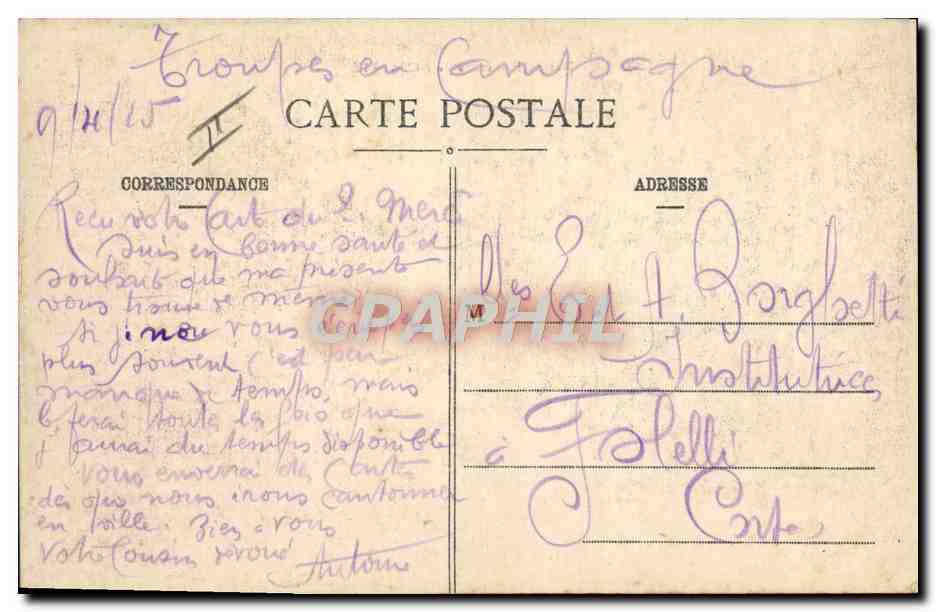 Troupes en Campagne
9/4/15
II
CARTE POSTALE
CORRESPONDANCE
Reçu votre Carte du 2. Merci
suis en bonne santé et
souhait que ma présente
vous trouve de même
Si je ne vous
plus souvent c'est par
manque de temps, mais
le ferai toute les fois que
j'aurai du temps disponible
Vous enverrai des Cartes
dès que nous irons cantonner
en ville. Bien à vous
Votre Cousin dévoué
Antoine
ADRESSE
M
lles E. et A. Borghetti
Institutrices
à Folelli
Corse
CPAPHIL